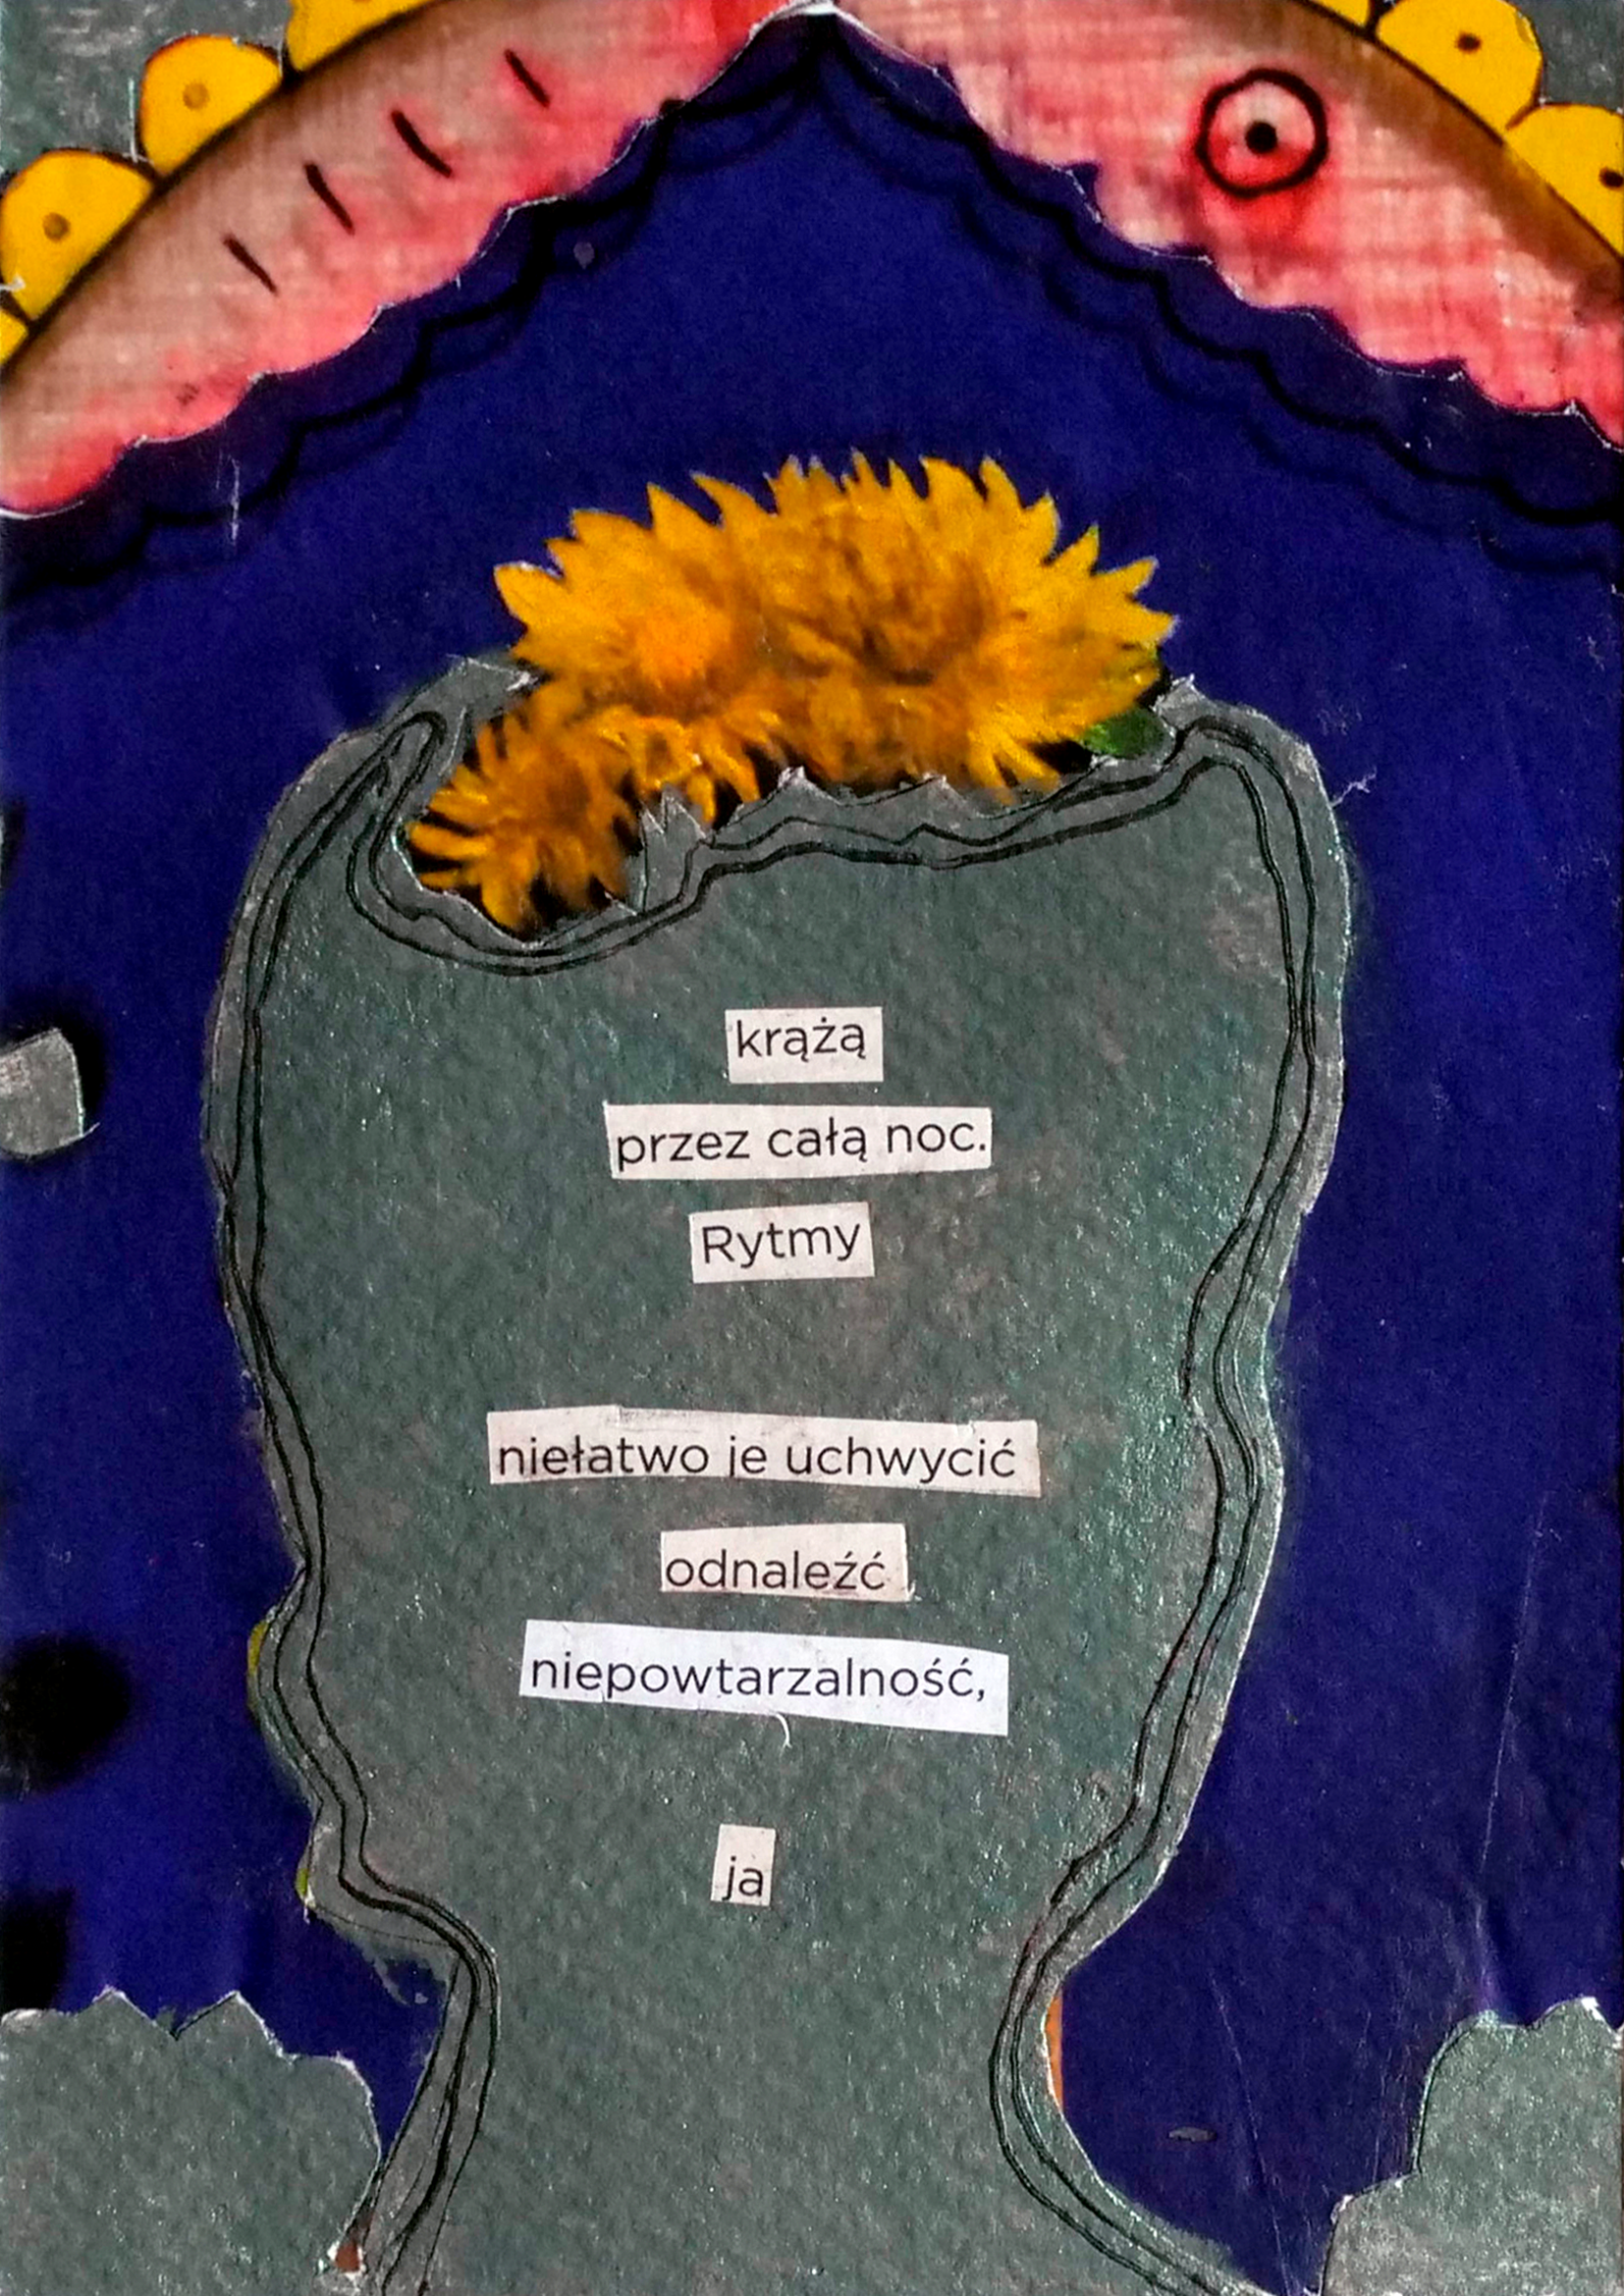 krążą
przez całą noc.
Rytmy
niełatwo je uchwycić
odnaleźć
niepowtarzalność,
ja